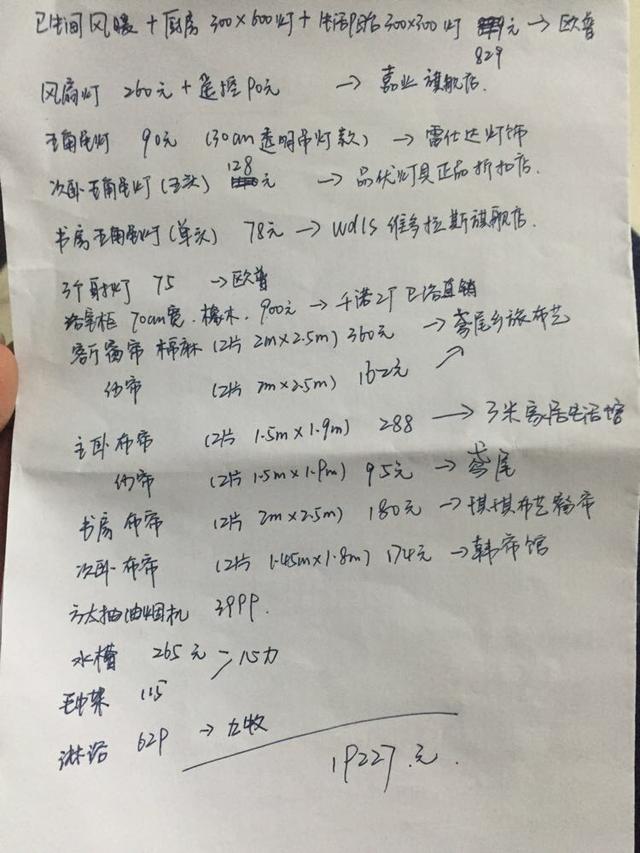 卫生间风暖+厨房300×600灯+生活阳台300×300灯 829元→欧普
风扇灯 260元+遥控90元 →嘉业旗舰店.
五角星灯 90元 (30cm透明吊灯款) →雷仕达灯饰
次卧五角星灯(五头) 128元 →品优灯具正品折扣店.
书房五角星灯(单头) 78元→wdls维多拉斯旗舰店.
3个射灯 75 →欧普
浴室柜 70cm宽.橡木.900元→千诺工厂卫浴直销
客厅窗帘 棉麻 (2片 2m×2.5m) 360元 →鸢尾乡旅布艺
纱帘 (2片 2m×2.5m) 162元
主卧布帘 (2片 1.5m×1.9m) 288 →3米家居生活馆
纱帘 (2片 1.5m×1.9m) 95元→鸢尾
书房布帘 (2片 2m×2.5m) 180元→琪琪布艺窗帘
次卧布帘 (2片 1.45m×1.8m) 174元→韩帘馆
方太抽油烟机 3999.
水槽 265元
毛巾架 115
淋浴 629 →九牧
19227.元.